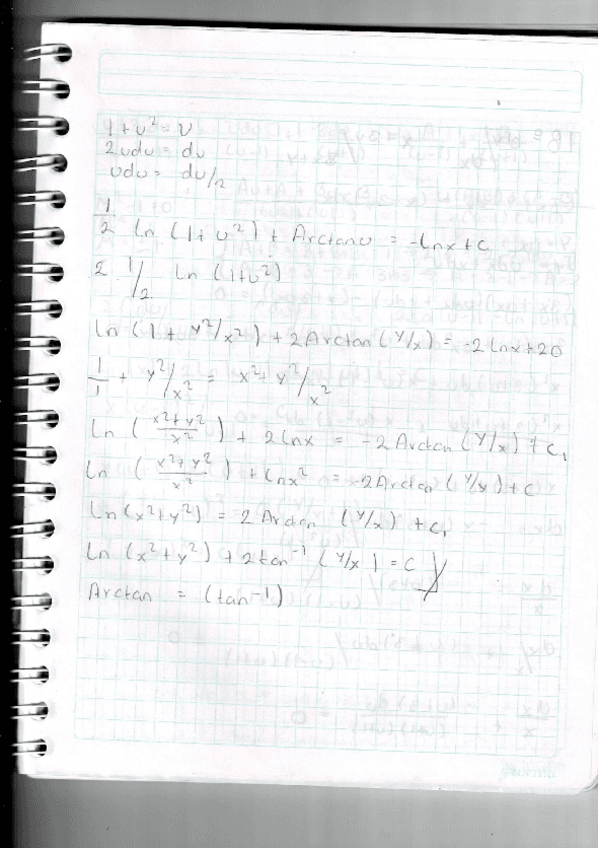 1+u² = V
2udu = dv
udu = dv/2
1/2 Ln (1+u²) + Arctan u = -Lnx + C
2 1/2 Ln (1+u²)
Ln (1 + y²/x²) + 2 Arctan (y/x) = -2 Lnx + 2C
1/1 + y²/x² = x²+y²/x²
Ln (x²+y²/x²) + 2 Lnx = -2 Arctan (y/x) + C₁
Ln (x²+y²/x²) + Lnx² = -2 Arctan (y/x) + C
Ln (x²+y²) = 2 Arctan (y/x) + C₁
Ln (x²+y²) + 2 tan⁻¹ (y/x) = C
Arctan = (tan⁻¹)